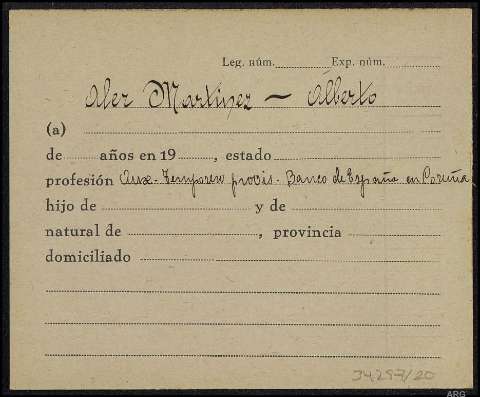 Leg. núm. Exp. núm.
Aler Martinez - Alberto
(a)
de años en 19 , estado
profesión Aux. Temporero provis. Banco de España en Coruña
hijo de y de
natural de , provincia
domiciliado
34,297/20
ARG